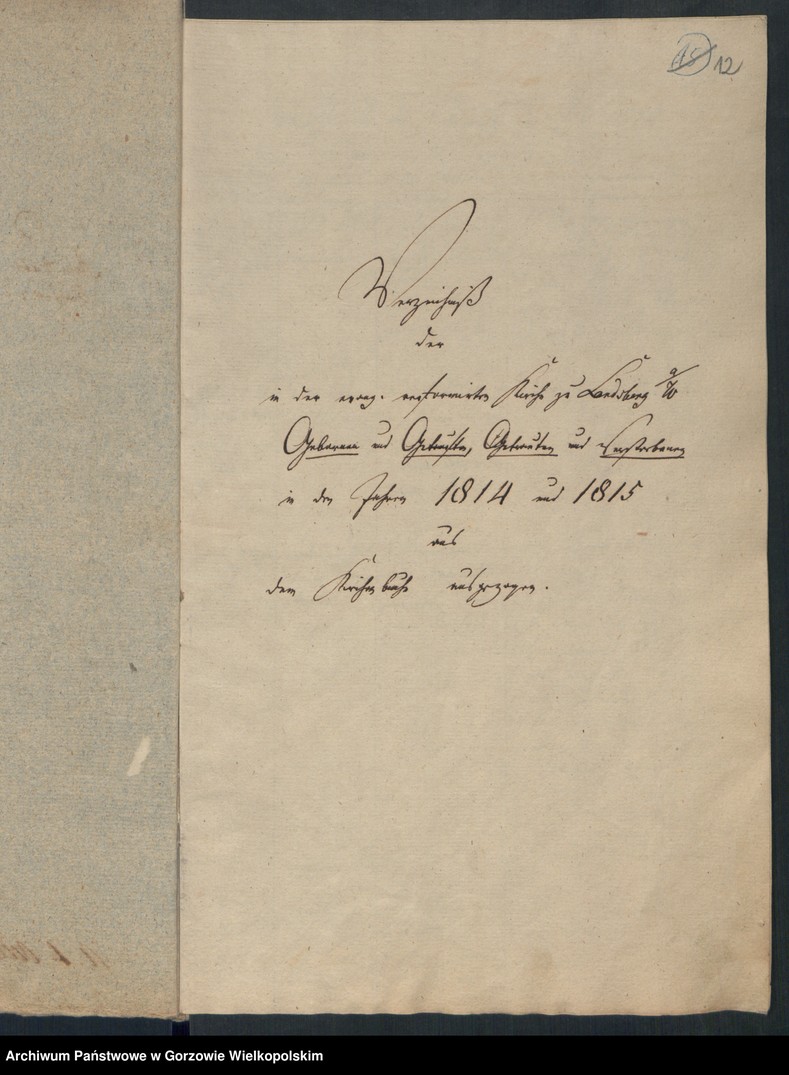 15 12
Verzeichniß
der
in der evang. reformirten Kirche zu Landsberg a/W
Gebornen und Getauften, Getrauten und Verstorbenen
in den Jahren 1814 und 1815
aus
dem Kirchenbuche ausgezogen.
Archiwum Państwowe w Gorzowie Wielkopolskim